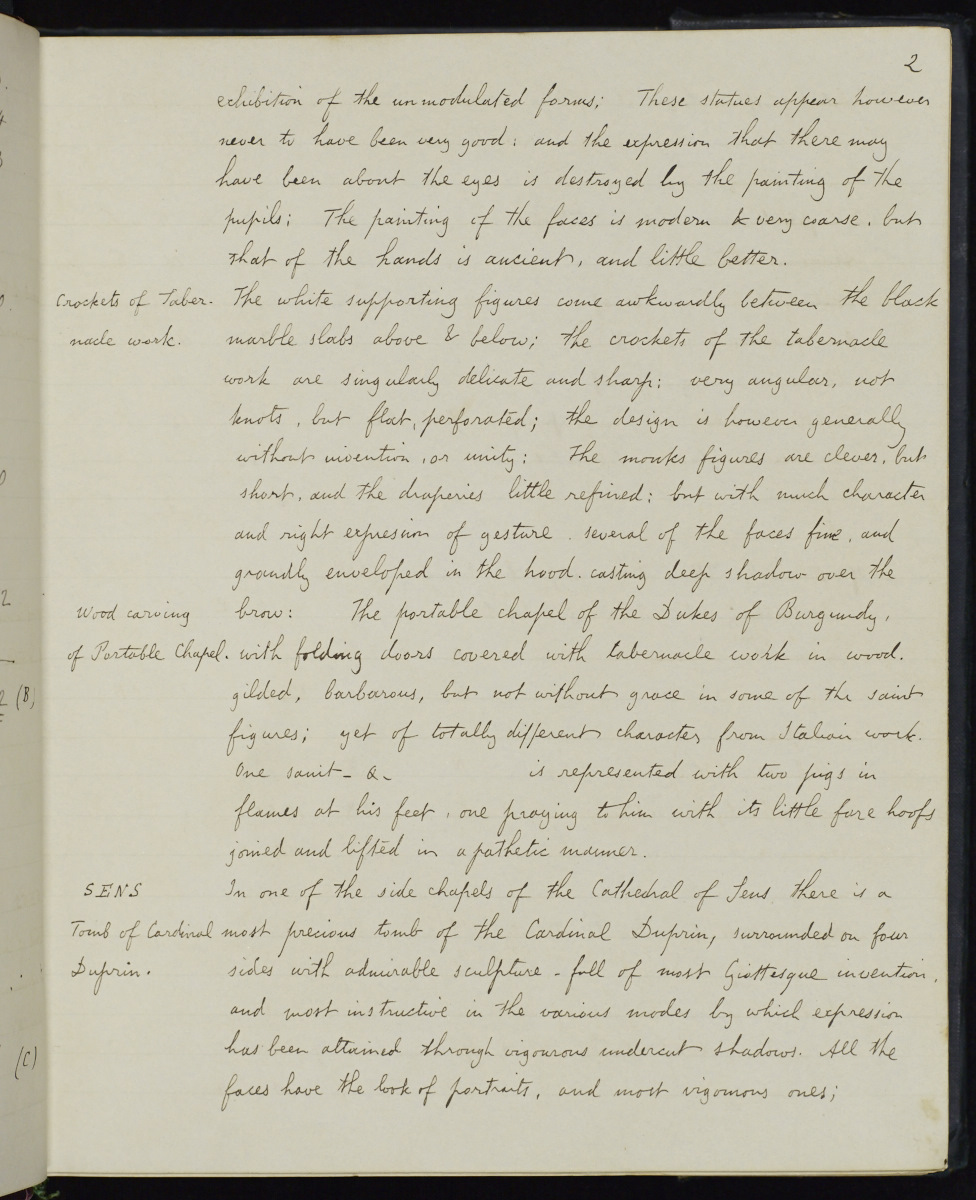 2
exhibition of the unmodulated forms; These statues appear however
never to have been very good: and the expression that there may
have been about the eyes is destroyed by the painting of the
pupils; The painting of the faces is modern & very coarse, but
that of the hands is ancient, and little better.
Crockets of Taber- The white supporting figures come awkwardly between the black
nacle work. marble slabs above & below; the crockets of the tabernacle
work are singularly delicate and sharp; very angular, not
knots, but flat, perforated; the design is however generally
without invention, or unity; The monks figures are clever, but
short, and the draperies little refined; but with much character
and right expression of gesture. several of the faces fine, and
grandly enveloped in the hood. casting deep shadow over the
Wood carving brow: The portable chapel of the Dukes of Burgundy,
of Portable Chapel. with folding doors covered with tabernacle work in wood.
gilded, barbarous, but not without grace in some of the saint
figures; yet of totally different character from Italian work.
One saint - a - is represented with two pigs in
flames at his feet, one praying to him with its little fore hoofs
joined and lifted in a pathetic manner.
SENS In one of the side chapels of the Cathedral of Sens there is a
Tomb of Cardinal most precious tomb of the Cardinal Duprin, surrounded on four
Duprin. sides with admirable sculpture - full of most Giottesque invention,
and most instructive in the various modes by which expression
has been attained through vigourous undercut shadows. All the
faces have the look of portraits, and most vigorous ones;
2 (B)
(C)